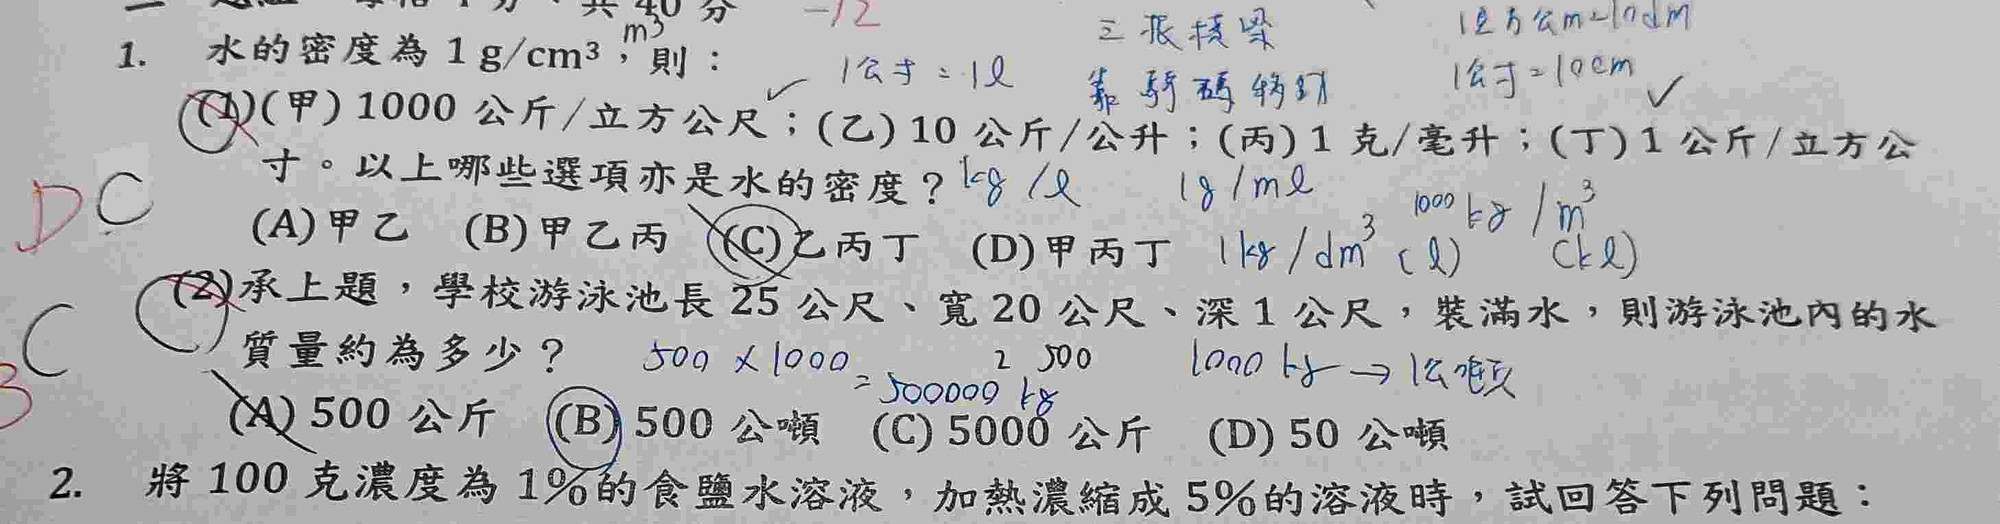 共 40 分
-12
三張積累
1立方公m=10dm
m³
1. 水的密度為 1 g/cm³,則:
1公寸=1l
1公寸=10cm
(1)(甲) 1000 公斤/立方公尺;(乙) 10 公斤/公升;(丙) 1 克/毫升;(丁) 1 公斤/立方公
寸。以上哪些選項亦是水的密度?
kg/l 1g/ml 1000 kg/m³
D C
(A)甲乙 (B)甲乙丙 (C)乙丙丁 (D)甲丙丁
1kg/dm³ (l) (kl)
(2)承上題,學校游泳池長 25 公尺、寬 20 公尺、深 1 公尺,裝滿水,則游泳池內的水
質量約為多少?
C
B
500 × 1000 = 500000 kg
2 500
1000 kg → 1公噸
(A) 500 公斤 (B) 500 公噸 (C) 5000 公斤 (D) 50 公噸
2. 將 100 克濃度為 1%的食鹽水溶液,加熱濃縮成 5%的溶液時,試回答下列問題: